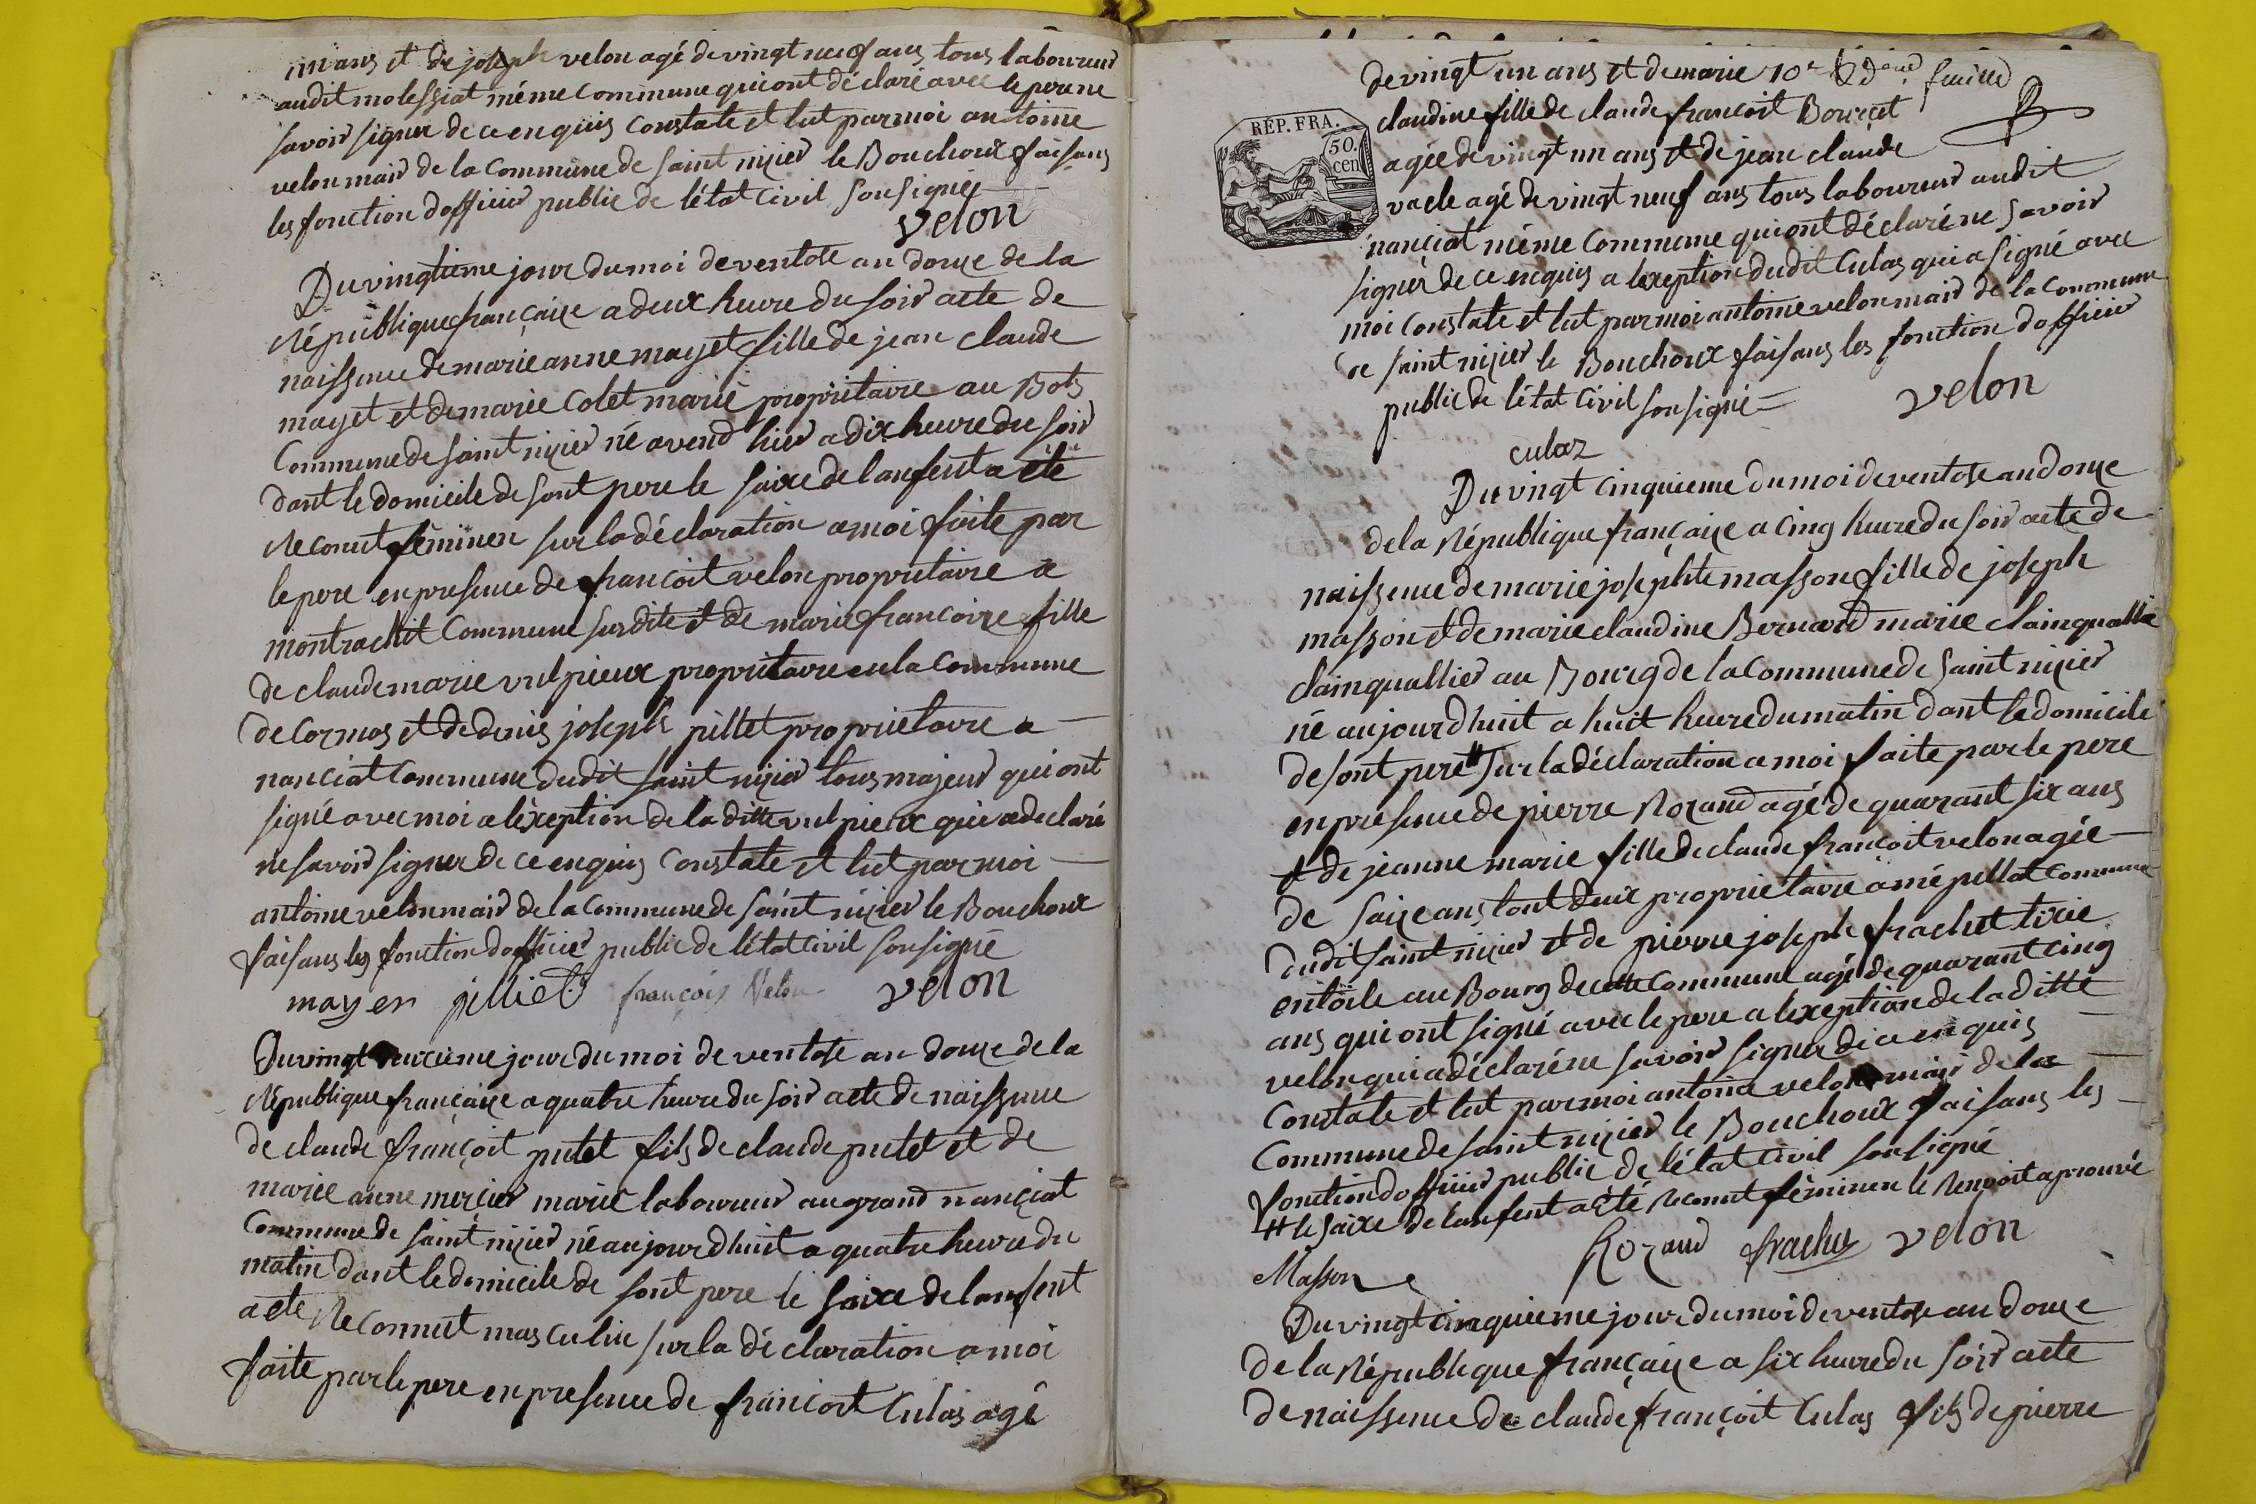 un ans et de joseph velon agé de vingt neuf ans tous laboureur
audit molessiat méme commune qui ont déclaré avec le pere ne
savoir signer de ce enquis constate et lut par moi antoine
velon mair de la commune de saint nizier le Bouchoux faisans
les fonction dofficier public de létat civil sousigné
velon
Du vingtieme jour du moi de ventose an douze de la
République française a deux heure du soir acte de
naissence de marie anne mayet fille de jean claude
mayet et de marie Colet marié propriétaire au Bots
Commune de saint nizier né avend hier a dix heure du soir
dant le domicile de sont pere le saixe de lanfent a été
Reconut féminen sur la déclaration a moi faite par
le pere en presence de françoit velon propriétaire a
montrachit Commune susdite et de marie francoize fille
de claude marie vulpieux propriétaire en la Commune
de Cormos et de denis joseph pillet propriétaire a
nanciat Commune dudit saint nizier tous majeur qui ont
signé avec moi a léxeption de la ditte vulpieux qui a declaré
ne savoir signer de ce enquis Constate et lut par moi
antoine velon mair de la Commune de saint nizier le Bouchoux
faisans les fonction dofficier public de létat civil sousigné
mayer pilliet françois Velon velon
Du vingt jour du moi de ventose an douze de la
République française a quatre heure du soir acte de naissence
de claude françoit putet fils de claude putet et de
marie anne mercier marié laboureur au grand nanciat
Commune de saint nizier né aujourdhuit a quatre heure du
matin dant le domicile de sont pere le saixe de lanfent
a ete Reconnut masculin sur la déclaration a moi
faite par le pere en presence de francoit Culas agé
de vingt un ans et de marie 10e feuille
claudine fille de claude francoit Bourcet
RÉP. FRA.
50.
cen
agée de vingt un ans et de jean claude
vacle agé de vingt neuf ans tous laboureur audit
nanciat méme Commune qui ont déclaré ne savoir
signer de ce enquis a lexeption dudit Culas qui a signé avec
moi constate et lut par moi antoine velon mair de la commune
de saint nizier le Bouchoux faisans les fonction dofficier
public de létat civil sousigné
velon
culaz
Du vingt cinquieme du moi de ventose an douze
de la République française a cinq heure du soir acte de
naissence de marie josephte masson fille de joseph
masson et de marie claudine Bernard marié clainquallié
clainquallier au Bourg de la Commune de saint nizier
né aujourdhuit a huit heure du matin dant le domicile
de sont pere # sur la déclaration a moi faite par le pere
en presence de pierre Rozand agé de quarant six ans
et de jeanne marie fille de claude françoit velon agée
de saize ans tout deux propriétaire a mépillat Commune
dudit saint nizier et de pierre joseph frachet tixié
en toile au Bourg de cette Commune agé de quarant cinq
ans qui ont signé avec le pere a lexeption de la ditte
velon qui a déclaré ne savoir signer de ce enquis
Constate et lut par moi antoine velon mair de la
Commune de saint nizier le Bouchoux faisans les
fonction dofficier public de létat civil sousigné
# le saixe de lanfent a été reconut féminen le Renvoit aprouvé
Rozand frachet velon
Masson
Du vingt cinquieme jour du moi de ventose an douze
de la République française a six heure du soir acte
de naissence de claude françoit Culas fils de pierre